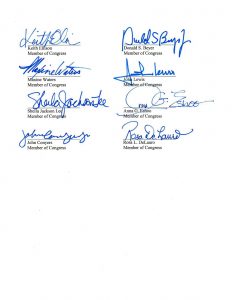 Keith Ellison
Keith Ellison
Member of Congress
Donald S. Beyer Jr
Donald S. Beyer
Member of Congress
Maxine Waters
Maxine Waters
Member of Congress
John Lewis
John Lewis
Member of Congress
Sheila Jackson Lee
Sheila Jackson Lee
Member of Congress
Anna G. Eshoo
Anna G. Eshoo
Member of Congress
John Conyers Jr
John Conyers
Member of Congress
Rosa DeLauro
Rosa L. DeLauro
Member of Congress